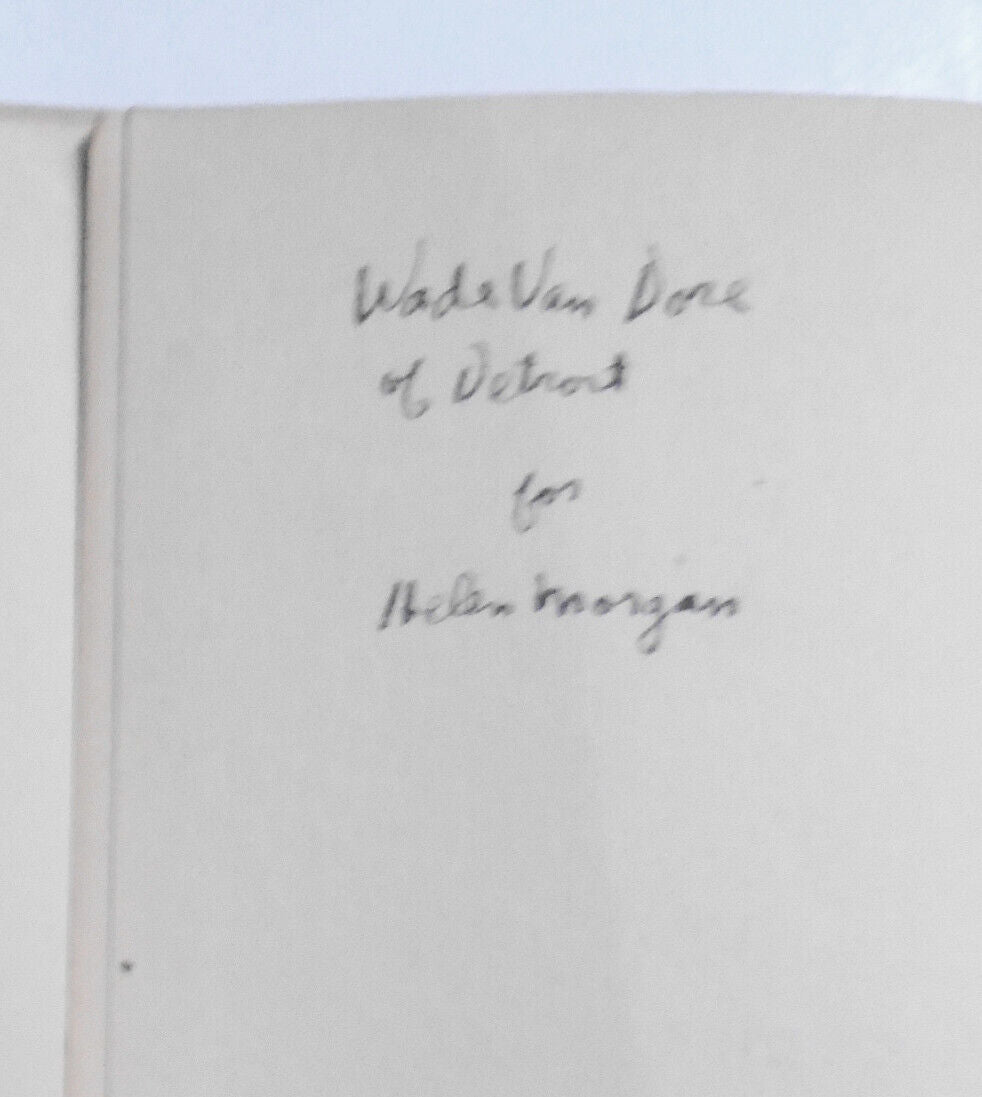 Wade Van Dore
of Detroit
for
Helen Morgan